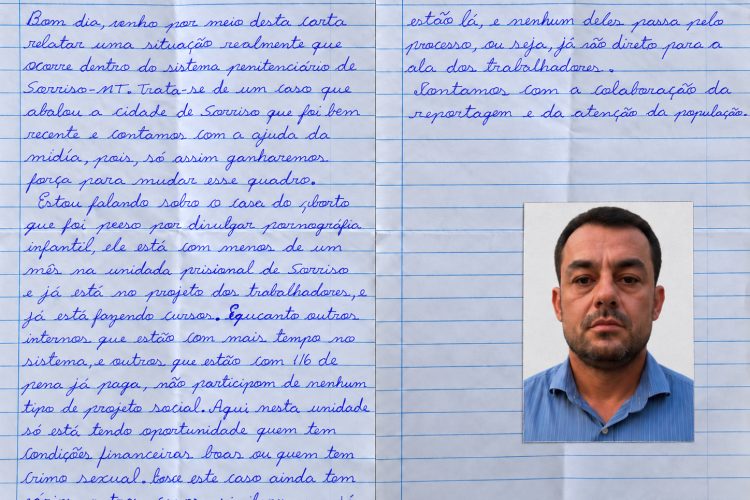 Bom dia, venho por meio desta carta
relatar uma situação realmente que
ocorre dentro do sistema penitenciário de
Sorriso-MT. Trata-se de um caso que
abalou a cidade de Sorriso que foi bem
recente e contamos com a ajuda da
midía, pois, só assim ganharemos
força para mudar esse quadro.
Estou falando sobre o casa do
que foi peeso por divulgar pornográfia
infantil, ele está com menos de um
mês na unidada prisional de Sorriso
e já está no projeto dos trabalhadores, e
já está fazendo cursos. Equcanto outros
internos que estão com mais tempo no
sistema, e outros que estão com 1/6 de
pena já paga, não participom de nenhum
tipo de projeto social. Aqui nesta unidade
só está tendo oportunidade quem tem
condições financeiras boas ou quem tem
crimo sexual. este caso ainda tem
estão lá, e nenhum deles passa pelo
processo, ou seja, já vão direto para a
ala dos trabalhadores.
Contamos com a colaboração da
reportagem e da atenção da população.